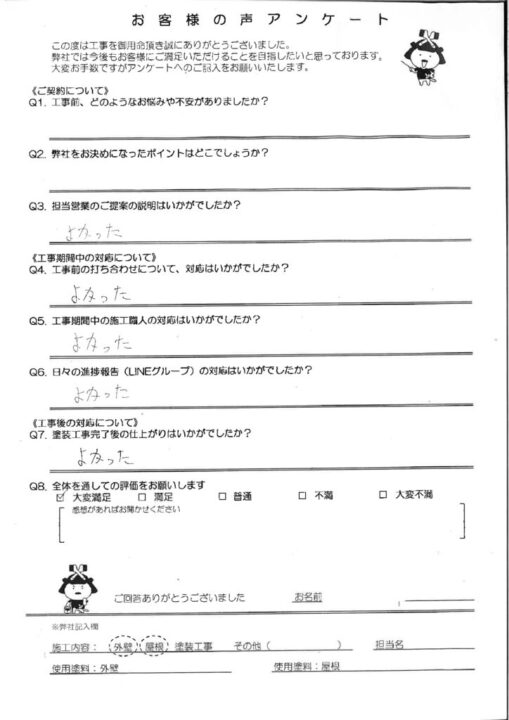 お客様の声アンケート
この度は工事を御用命頂き誠にありがとうございました。
弊社では今後もお客様にご満足いただけることを目指したいと思っております。
大変お手数ですがアンケートへのご記入をお願いいたします。
《ご契約について》
Q1. 工事前、どのようなお悩みや不安がありましたか？
Q2. 弊社をお決めになったポイントはどこでしょうか？
Q3. 担当営業のご提案の説明はいかがでしたか？
よかった
《工事期間中の対応について》
Q4. 工事前の打ち合わせについて、対応はいかがでしたか？
よかった
Q5. 工事期間中の施工職人の対応はいかがでしたか？
よかった
Q6. 日々の進捗報告（LINEグループ）の対応はいかがでしたか？
よかった
《工事後の対応について》
Q7. 塗装工事完了後の仕上がりはいかがでしたか？
よかった
Q8. 全体を通しての評価をお願いします
☑ 大変満足 □ 満足 □ 普通 □ 不満 □ 大変不満
感想があればお聞かせください
ご回答ありがとうございました お名前
※弊社記入欄
施工内容： 外壁 屋根 塗装工事 その他（ ） 担当名
使用塗料：外壁 使用塗料：屋根